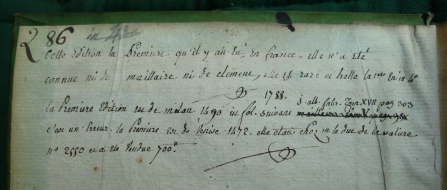 286
in 4to
Cette Edition la premiere qu'il y ait eu en france. elle n'a eté
connue ni de maittaire ni de clement, elle est rare et belle in 4o
1788.
la premiere Edition est de milan 1490 in fol. suivant
Tom XVII pag 303
c'est un Erreur. la premiere est de Venise 1472. elle etait chez m le duc de la valiere
no 2550 et a eté vendue 700